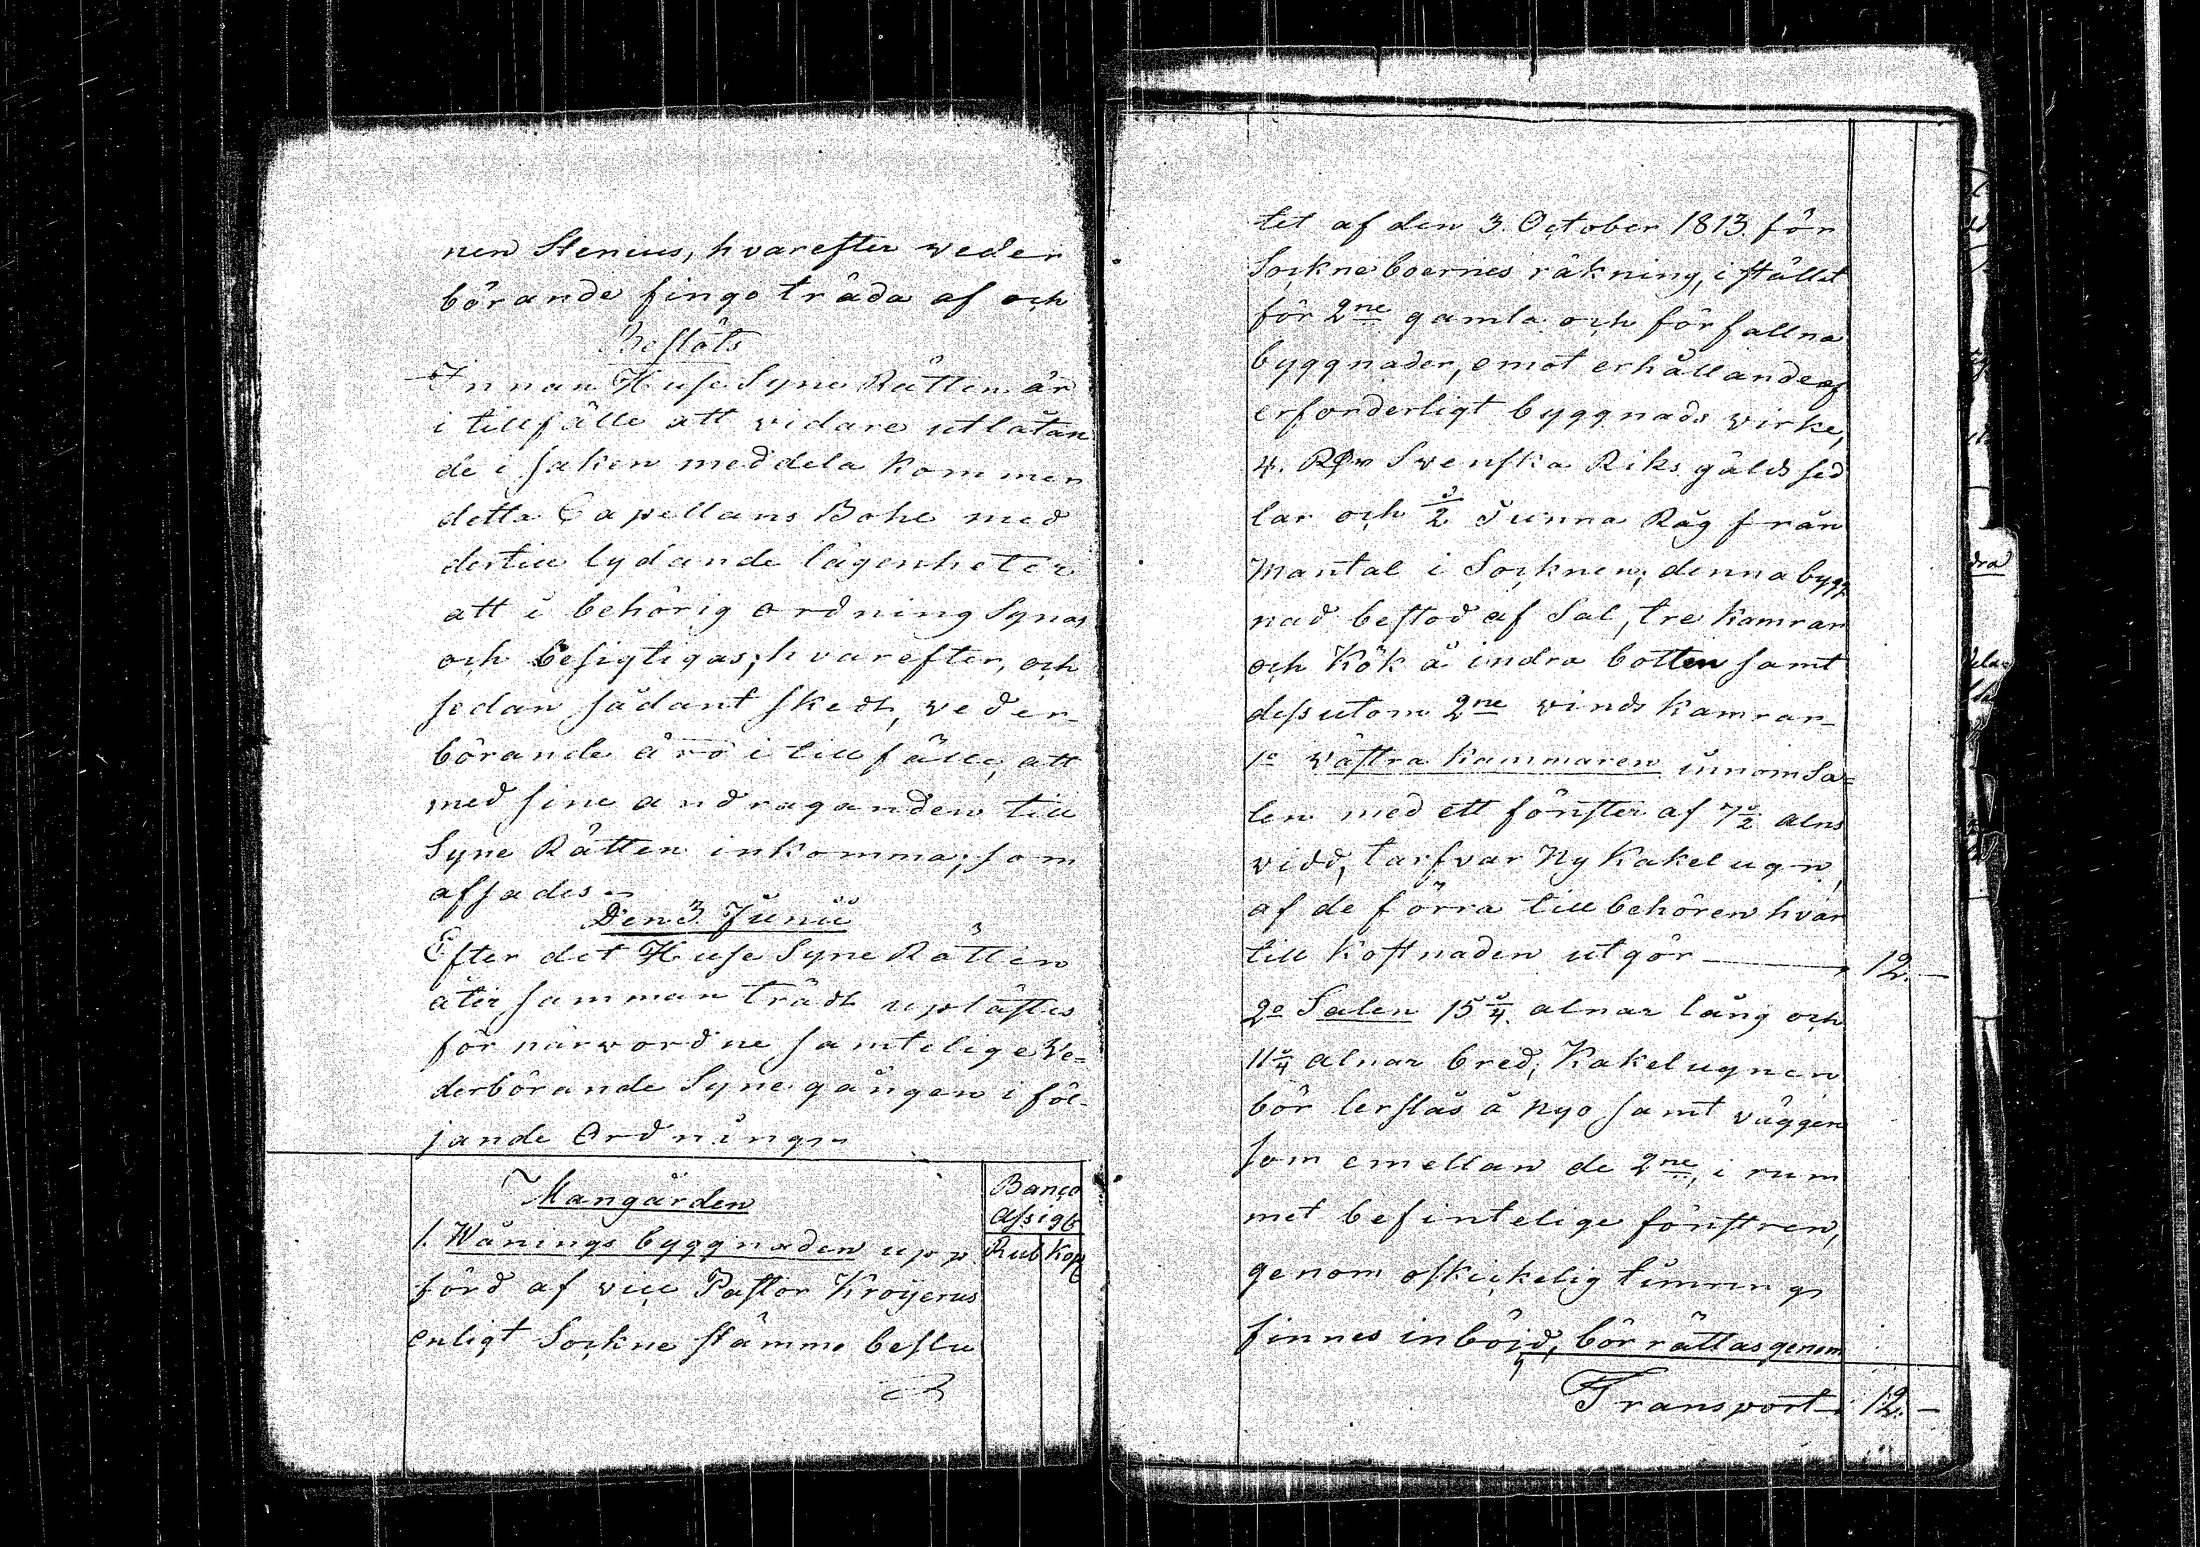 nen Stenius, hvarefter weder
börande fingo träda af och
Beslöts
Innan Huse Syne Rätten är
i tillfälle att vidare utlåtan
de i saken meddela kommer
detta Capellans Bohle med
dertill lydande lägenheter
att i behörig ordning Synas
och besigtigas; hvarefter, och
sedan sådant skedt, veder-
börande äro i tillfälle, att
med sine andraganden till
Syne Rätten inkomma; som
afsades.
Den 3 Junii
Efter det Huse Syne Rätten
åter sammanträdt uplästes
för närvordne samtelige Ve=
derbörande Syne gången i föl-
jande Ordning:
Mangården
1. Wånings byggnaden upp
förd af vice Pastor Kroijerus
enligt Sockne stämmo beslu
Banco
Assigt
Rub Kop
tet af den 3. October 1813 för
Sockneboernes räkning, i stället
för 2ne gamla och förfallna
byggnader, emot erhållande af
erforderligt byggnads virke,
4. RDr Svenska Riksgälds sed
lar och 1/2 Tunna Råg från
Mantal i Socknen; denna bygg
nad bestod af Sal, tre kamrar
och Kök å indra botten samt
dessutom 2ne vinds kamrar
1o västra kammaren innom Sa=
len med ett fönster af 7 1/2 alns
vidd, tarfvar Ny Kakelugn,
af de förra tillbehören hvar
till kostnaden utgör 12. —
2o Salen 15 1/4 alnar lång och
11 1/4 alnar bred; Kakelugnen
bör lerslås å nyo samt väggen
som emellan de 2ne, i rum
met befintelige fönstren,
genom oskickelig timring
finnes inböjd, bör rättas genom
Transport 12. —